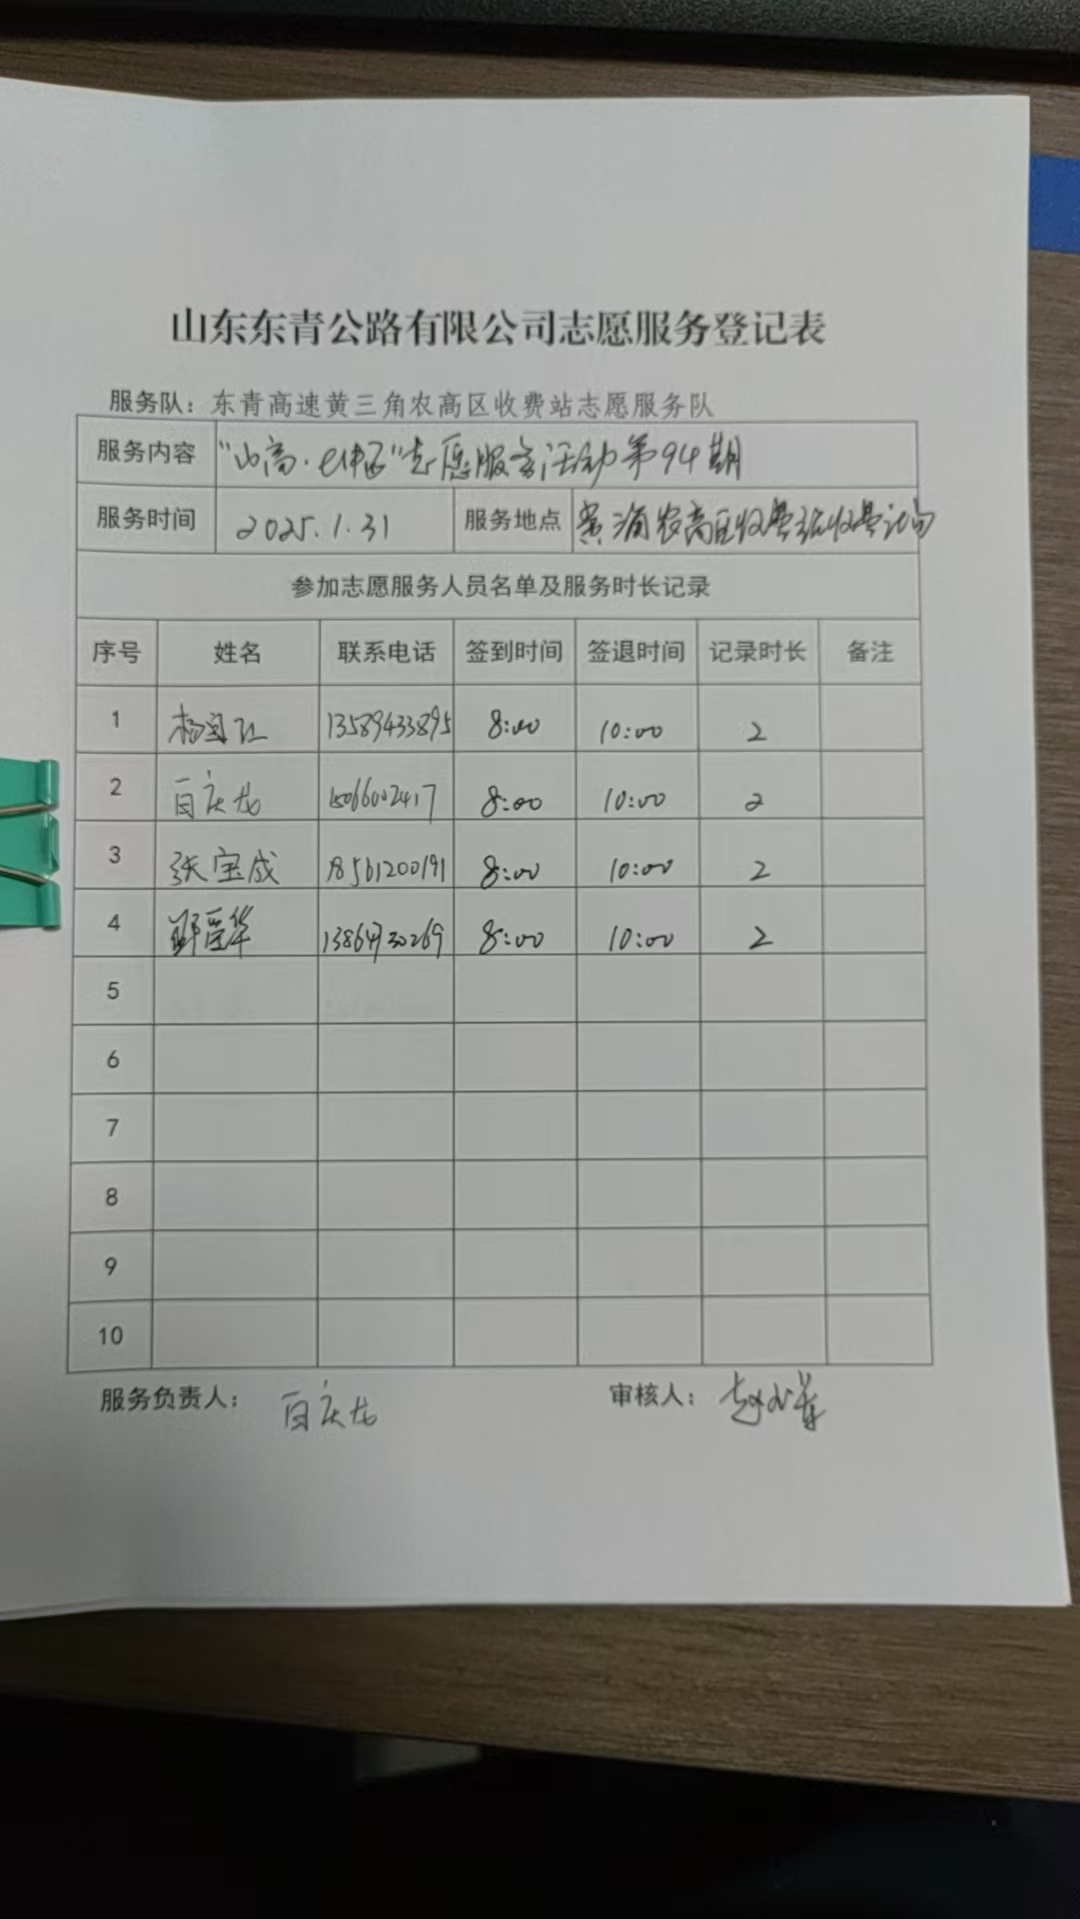 山东东青公路有限公司志愿服务登记表
服务队：东青高速黄三角农高区收费站志愿服务队
服务内容 "山高·e伸" 志愿服务活动第94期
服务时间 2025.1.31 服务地点 农高区收费站收费
参加志愿服务人员名单及服务时长记录
序号 姓名 联系电话 签到时间 签退时间 记录时长 备注
1 杨 13589433895 8:00 10:00 2
2 百庆龙 15066002417 8:00 10:00 2
3 张宝成 18561200191 8:00 10:00 2
4 华 8:00 10:00 2
5
6
7
8
9
10
服务负责人： 百庆龙 审核人： 赵